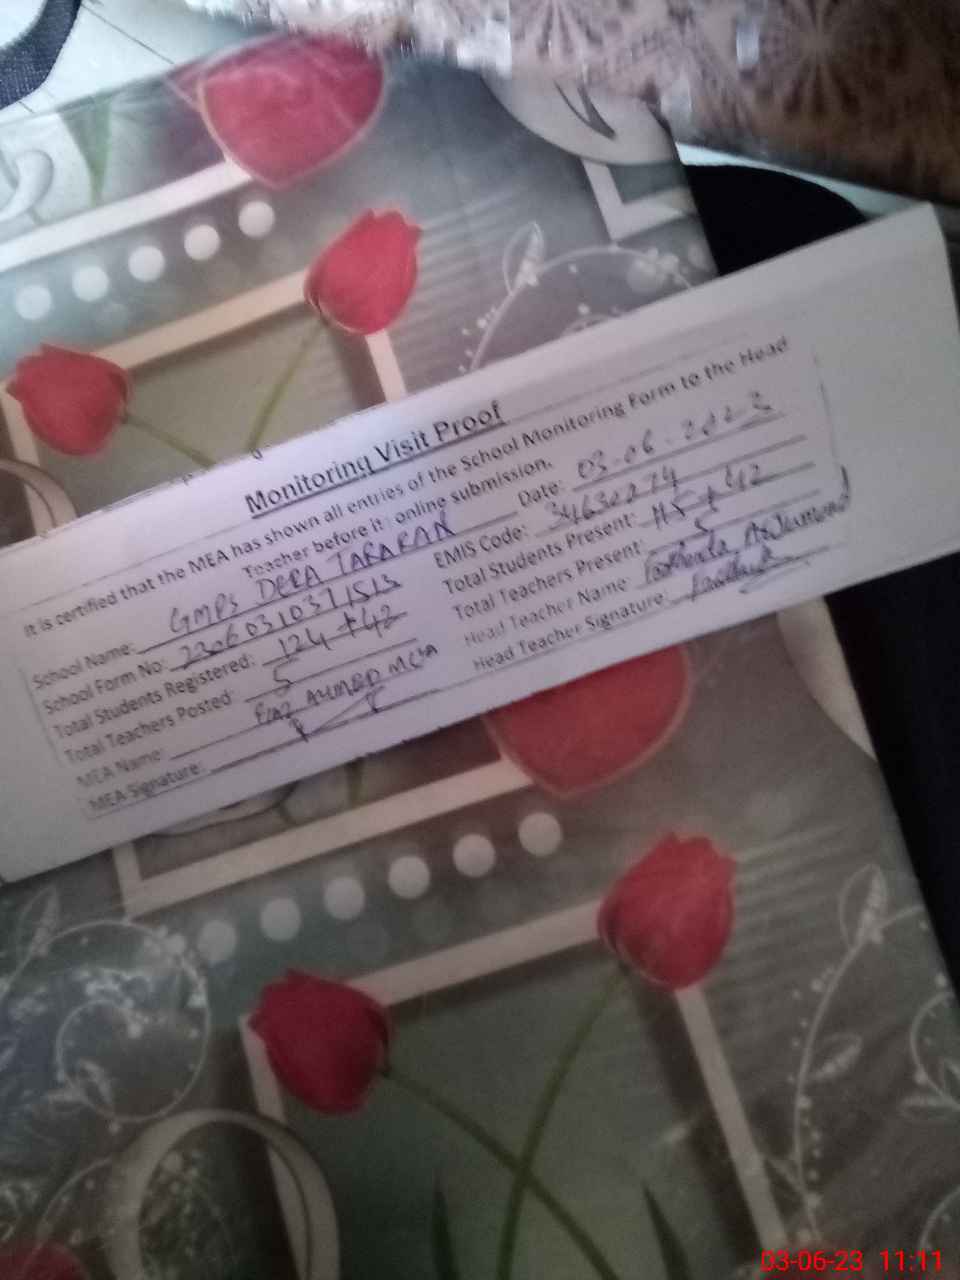 Monitoring Visit Proof
It is certified that the MEA has shown all entries of the School Monitoring Form to the Head
Teacher before it online submission.
School Name: GMPS DERA TARARAN Date: 03-06-2023
School Form No: 23060310371513 EMIS Code: 34630274
Total Students Registered: 124 + 42 Total Students Present: 115 + 42
Total Teachers Posted: 5 Total Teachers Present: 5
MEA Name: AHMED Head Teacher Name:
MEA Signature: Head Teacher Signature:
03-06-23 11:11